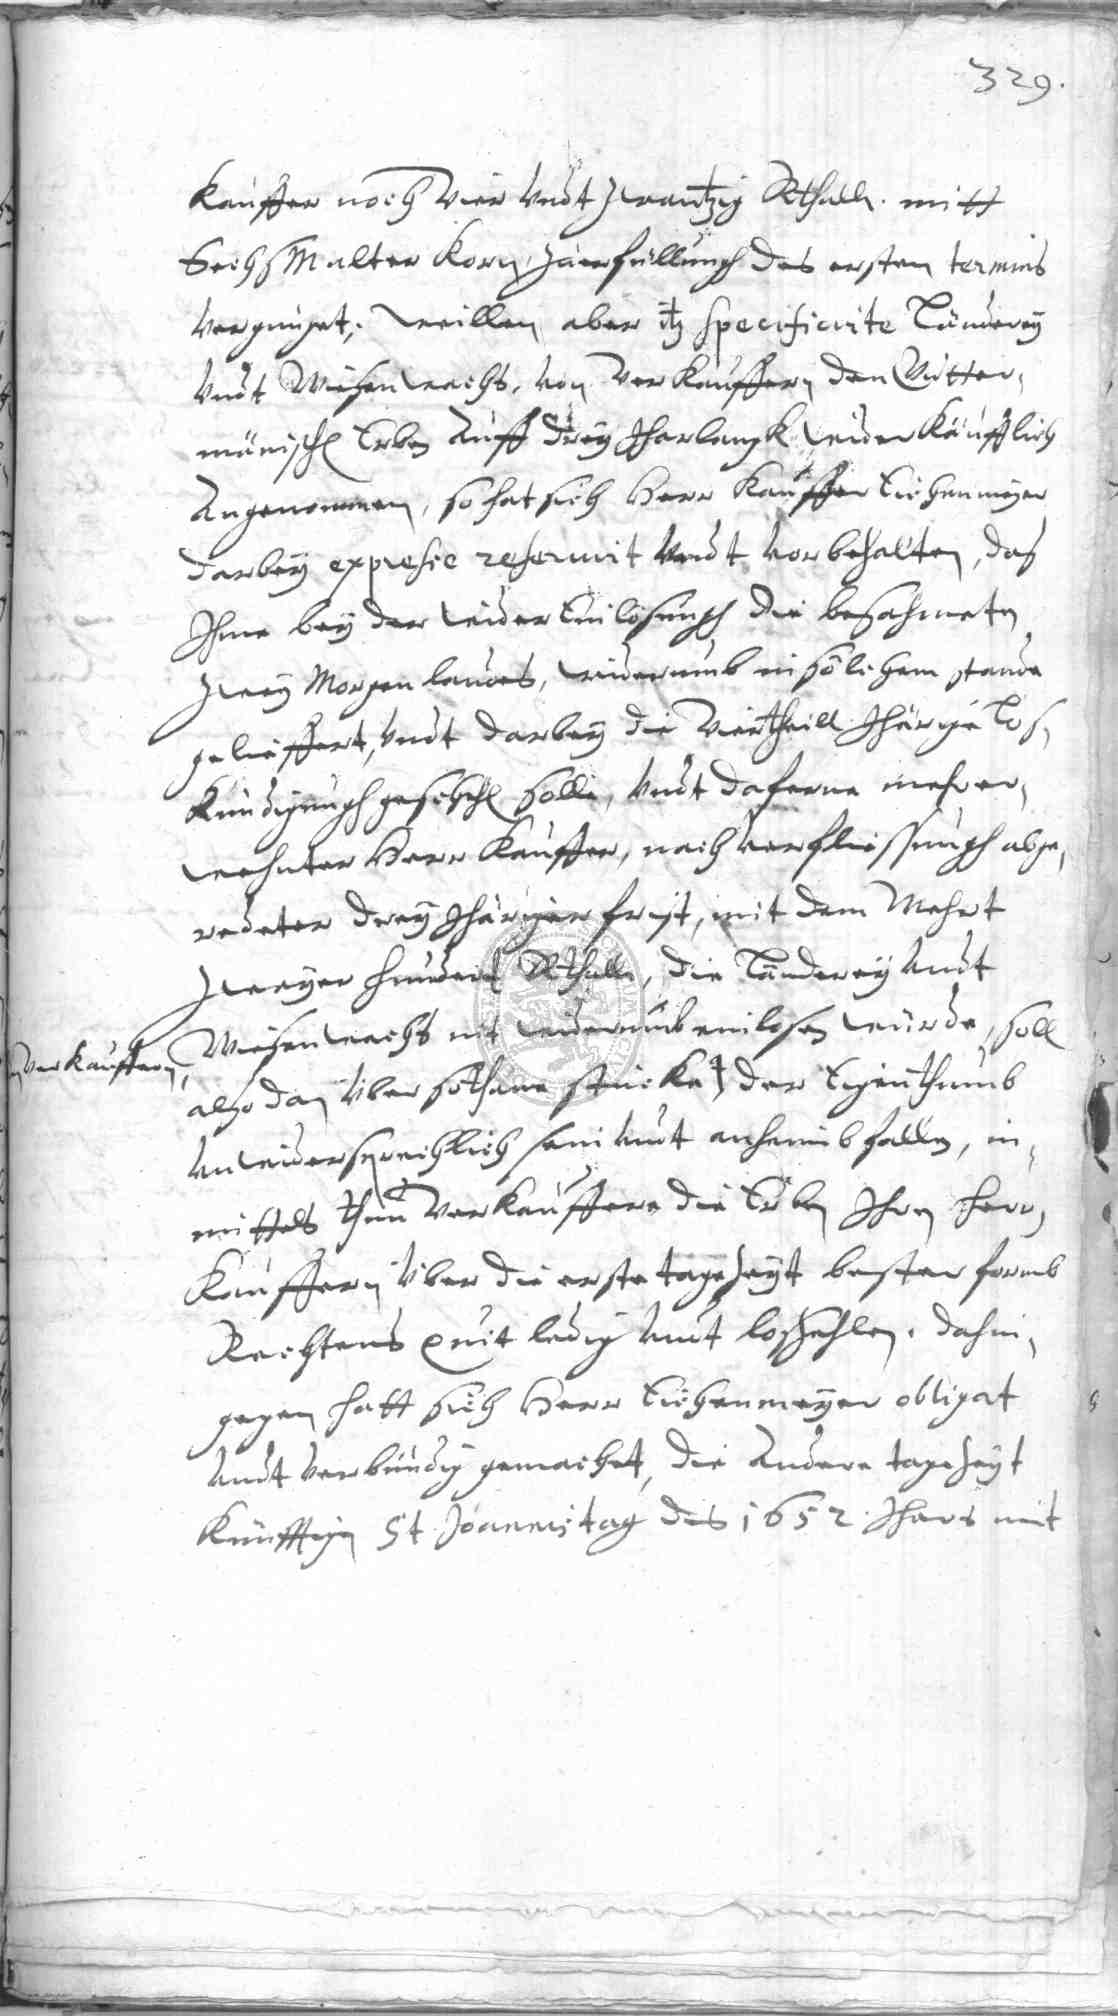 329.
Kauffer noch Vier Undt Zwantzig Rthall. mitt
Sechs Malter Korn, Zu erfüllungh des ersten termins
vergnuget; weillen aber itz specificirte Länderey
Undt Wiesenwachs, von Verkauffern den
mänisch Erben Auff drey Jharlangk widerkäufflich
Angenommen, so hat sich Herr Kauffer Eichenmeyer
darbey expresse reservirt Undt vorbehalten, das
Ihme bey der wider Einlösungh die besahmete
Zwey Morgen landes, widerumb in sölichem stande
gelieffert, Undt darbey die Viertheill Jhärige Los,
Kündigungh geschehen solle, Undt daferne mehrer,
wehnter Herr Kauffer, nach verfliessungh abge,
redeter drey Jhäriger frist, mit dem Mehrt
Zweyer hundert Rthall., die Länderey Undt
Wiesenwachs nit widerumb einlosen würde, soll
Verkauffern,
alßdan über sothane stücke der Eigenthumb
Unwidersprechlich sein Undt anheimb fallen, in,
mittels thun Verkauffere die Erben Ihren Herrn
Kauffern über die erste tagezeyt bester formb
Rechtens quit ledig Undt loszehlen. dahin,
gegen hatt sich Herr Eichenmeyer obligat
Undt verbündig gemachet, die Andere tagezeyt
Künfftigen St Joannis tag des 1652. Jhars mit